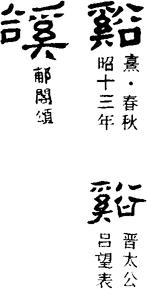 谿
熹·春秋
昭十三年
谿
晉太公
呂望表
豀
郙閣頌